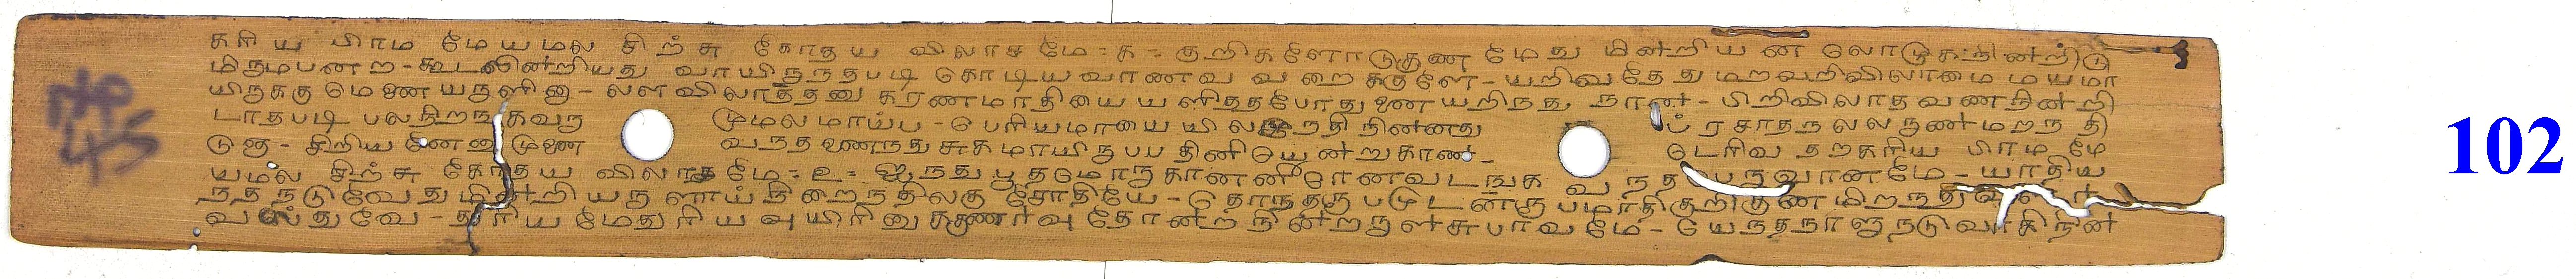 கரிய பிரம மேயமல சிற்சு கோதய விலாச மே - க - குறிகளோடுகுண மேது மின்றியன லொடுகநின்றிடு
மிருமபனற - கூடலின்றியது வாயிருநதபடி கொடியவாணவ வறைககுளே - யறிவதேது மறவறிவிலாமை மயமா
யிருககு மெனை யருளினு - லளவிலாததனு கரணமாதியை யளிததபோதுணை யறிநது நான் - பிறிவிலாதவணநின்றி
டாதபடி பலநிறஙகவரு முமலமாய்ப - பெரியமாயை யிலழுநதி நினனது ப்ரசாதநலல நுண்மறநதி
டுது - சிறிய னேனுமுனை வநதணைநது சுகமாயிருபபதினி யென்றுகாண் - டெரிவ தறகரிய பிரம மே
யமல சிற்சு கோதய விலாசமே - உ - ஐநது பூதமொரு கானனீரெனவடஙக வநதபெருவானமே - யாதிய
நதநடுவேதுமின்றி யருளாய் நிறைநதிலகு சோதியே - தொநதரூ படுடனரூ பமாதிகுறிகுண மிறநதுவளர்
வஸ்துவே - துரிய மேதுரிய வுயிரினு ககுணர்வு தோன்ற நின்றருள்சுபாவமே - யெநதநாளுநடுவாகிநின்
102